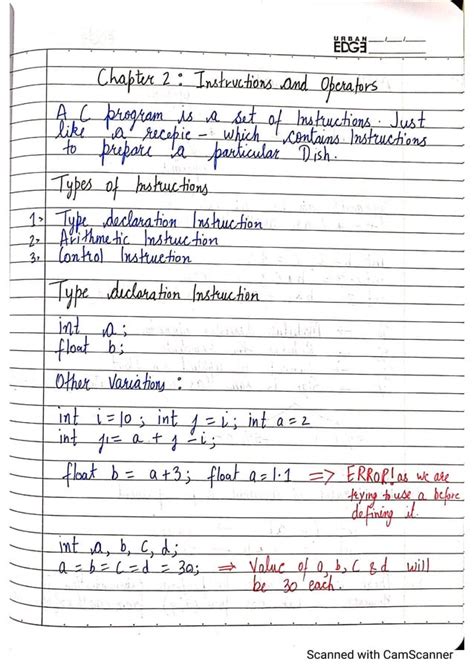 URBAN
EDGE
Chapter 2 : Instructions and Operators
A C program is a set of Instructions. Just
like a recepie - which contains Instructions
to prepare a particular Dish.
Types of Instructions
1. Type declaration Instruction
2. Arithmetic Instruction
3. Control Instruction
Type declaration Instruction
int a ;
float b ;
Other Variations :
int i=10 ; int j = i ; int a = 2
int j1 = a + j - i ;
float b = a+3 ; float a = 1.1 => ERROR! as we are
trying to use a before
defining it.
int a, b, c, d ;
a = b = c = d = 30 ; => Value of a, b, c & d will
be 30 each.
Scanned with CamScanner